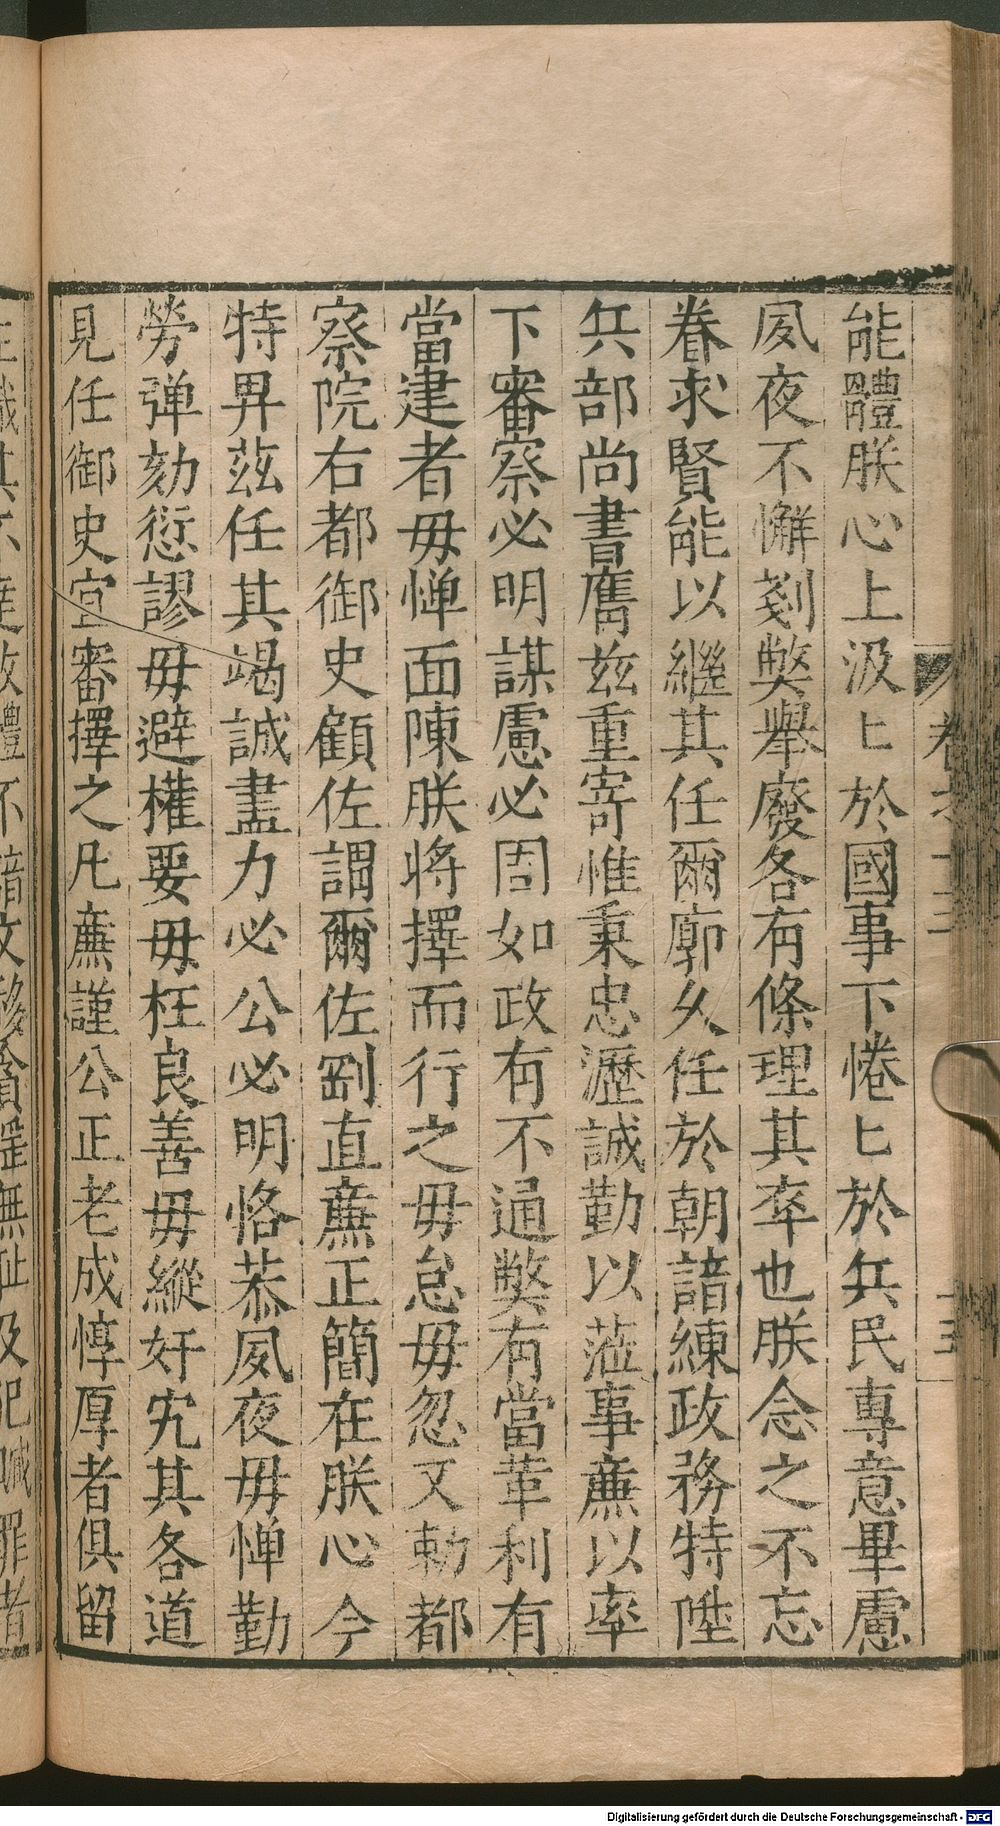 能體朕心上汲〻於國事下惓〻於兵民專意畢慮
夙夜不懈剗弊舉廢各有條理其卒也朕念之不忘
眷求賢能以繼其任爾廓久任於朝諳練政務特陞
兵部尚書膺茲重寄惟秉忠瀝誠勤以蒞事廉以率
下審察必明謀慮必周如政有不通弊有當革利有
當建者毋憚面陳朕將擇而行之毋怠毋忽又勑都
察院右都御史顧佐謂爾佐剛直廉正簡在朕心今
特畀茲任其竭誠盡力必公必明恪恭夙夜毋憚勤
勞彈劾愆謬毋避權要毋枉良善毋縱奸宄其各道
見任御史宜審擇之凡廉謹公正老成惇厚者俱留
Digitalisierung gefördert durch die Deutsche Forschungsgemeinschaft - DFG